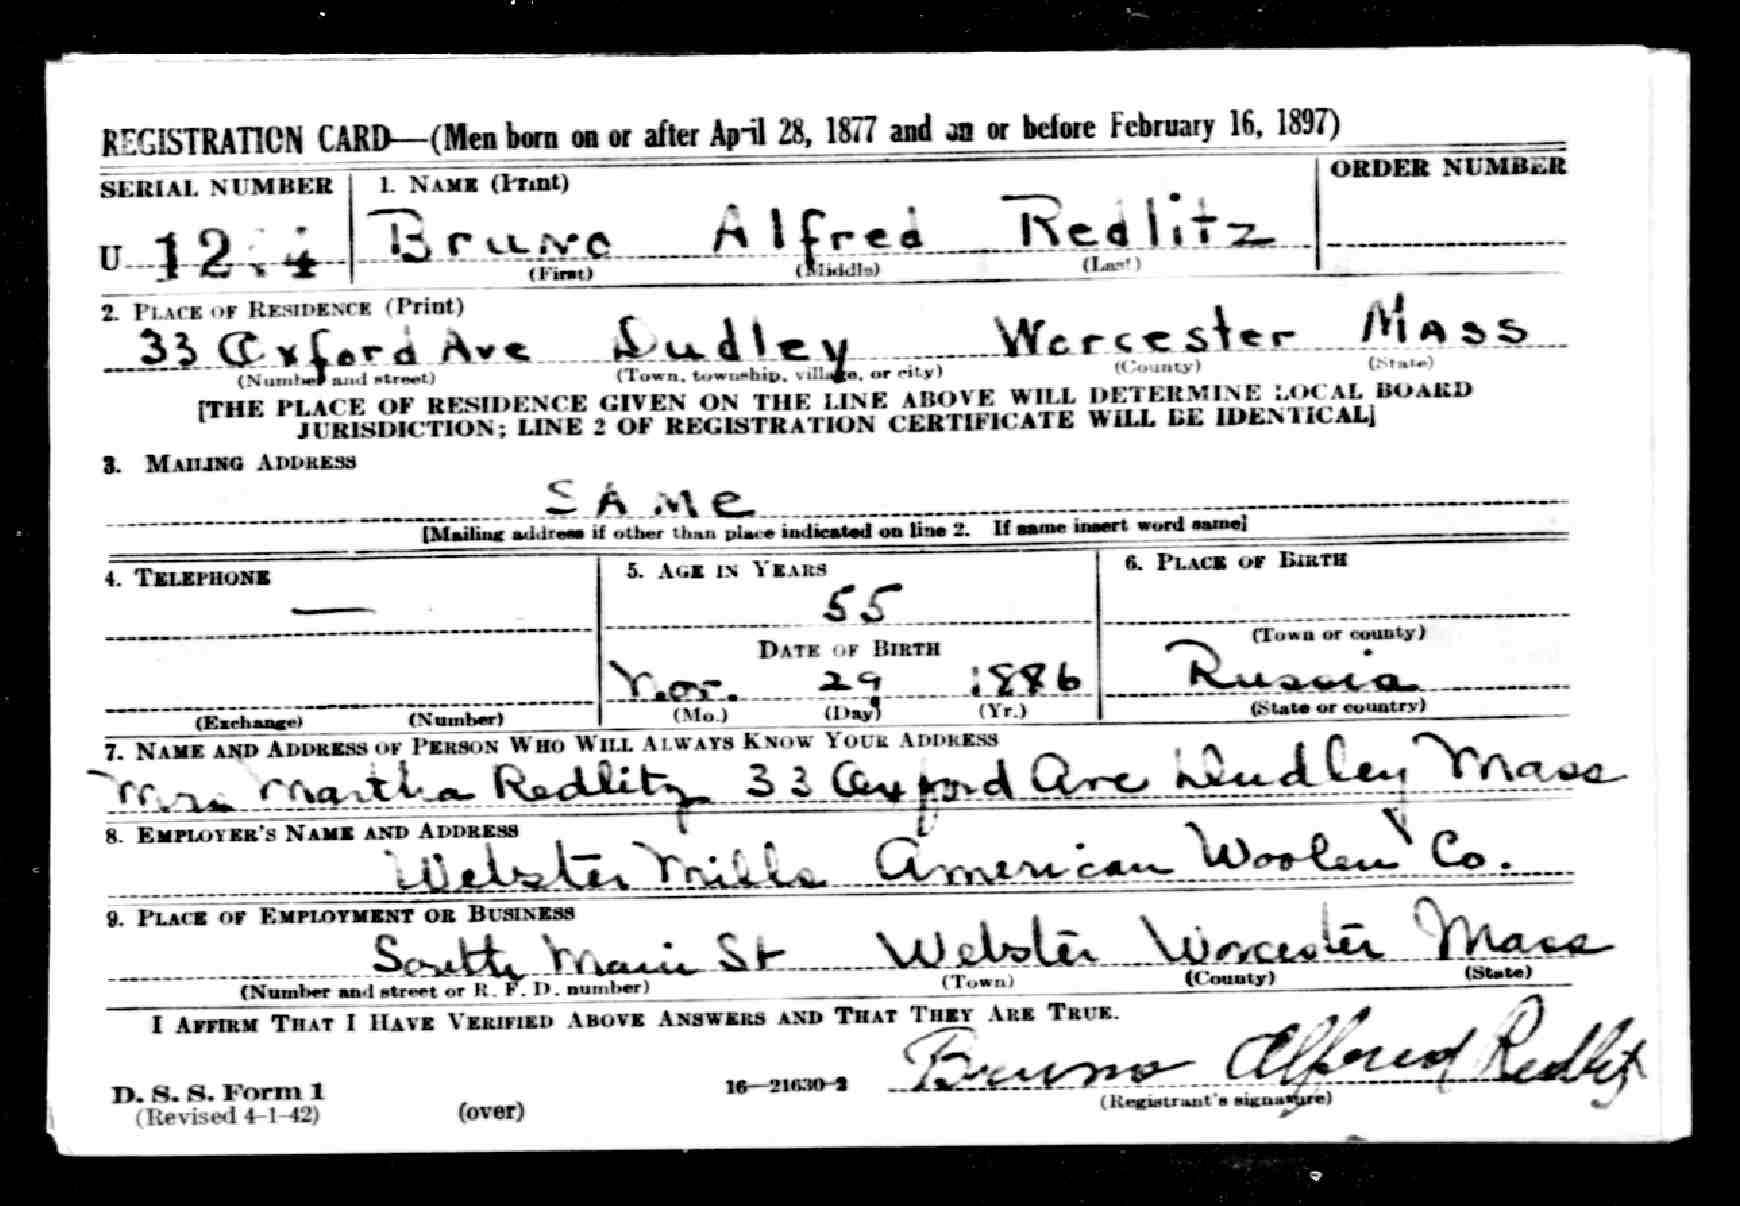 REGISTRATION CARD—(Men born on or after April 28, 1877 and on or before February 16, 1897)
SERIAL NUMBER 1. NAME (Print) ORDER NUMBER
U Bruno Alfred Redlitz
(First) (Middle) (Last)
2. PLACE OF RESIDENCE (Print)
33 Oxford Ave Dudley Worcester Mass
(Number and street) (Town, township, village, or city) (County) (State)
[THE PLACE OF RESIDENCE GIVEN ON THE LINE ABOVE WILL DETERMINE LOCAL BOARD
JURISDICTION; LINE 2 OF REGISTRATION CERTIFICATE WILL BE IDENTICAL]
3. MAILING ADDRESS
SAMe
[Mailing address if other than place indicated on line 2. If same insert word same]
4. TELEPHONE 5. AGE IN YEARS 6. PLACE OF BIRTH
— 55
(Town or county)
DATE OF BIRTH
Nov. 29 1886 Russia
(Exchange) (Number) (Mo.) (Day) (Yr.) (State or country)
7. NAME AND ADDRESS OF PERSON WHO WILL ALWAYS KNOW YOUR ADDRESS
Mrs Martha Redlitz 33 Oxford Ave Dudley Mass
8. EMPLOYER'S NAME AND ADDRESS
Webster Mills American Woolen Co.
9. PLACE OF EMPLOYMENT OR BUSINESS
South Main St Webster Worcester Mass
(Number and street or R. F. D. number) (Town) (County) (State)
I AFFIRM THAT I HAVE VERIFIED ABOVE ANSWERS AND THAT THEY ARE TRUE.
Bruno Alfred Redlitz
D. S. S. Form 1 16—21630-2 (Registrant's signature)
(Revised 4-1-42) (over)